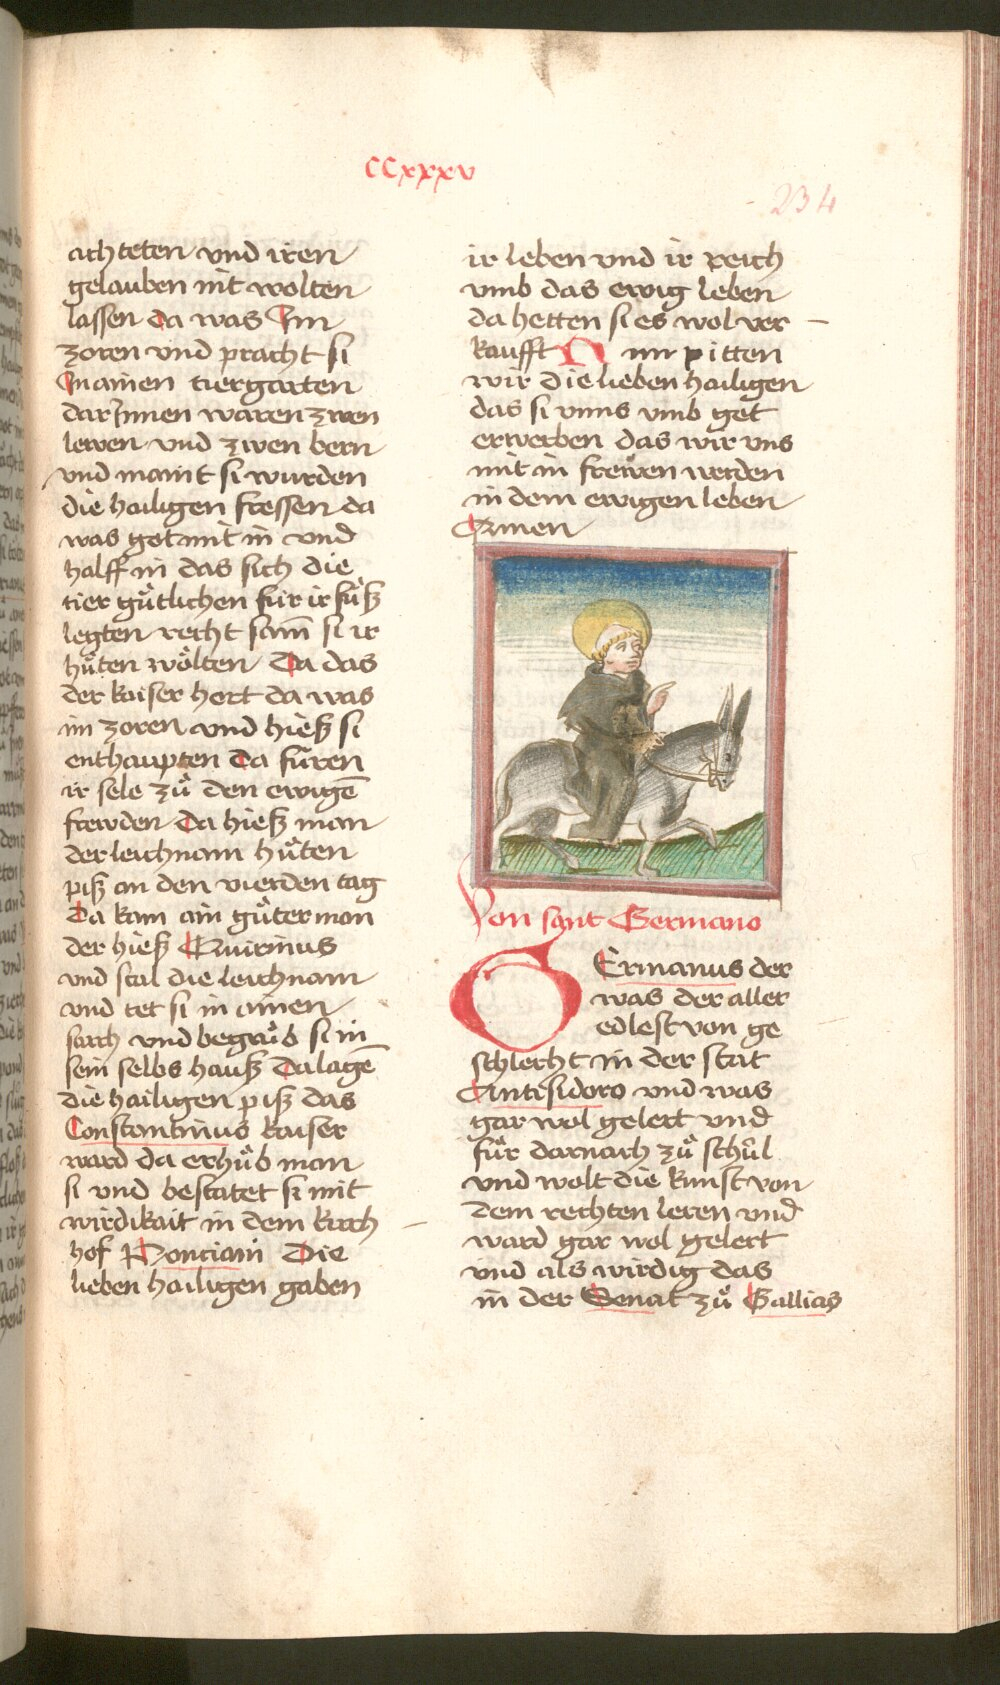 CCxxxv
234
achteten vnd iren
gelauben nit wolten
lassen da was Im
zoren vnd pracht si
In ainen tiergarten
dar Innen waren zwen
lewen vnd zwen bern
vnd maint si wurden
die hailigen fressen da
was got mit in vnd
halff in das sich die
tier gůtlichen fur ir fůß
legten recht sam̄ si ir
hůten wǒlten Da das
der kaiser hort da was
im zoren vnd hieß si
enthaupten Da fůren
ir sele zů den ewigē
frewden Da hieß man
der leichnam hůten
piß an den vierden tag
Da kam ain gůter man
der hieß Quirinus
vnd stal die leichnam
vnd tet si in ainen
sarch vnd begrůb si in
sein selbs hauß Da lagē
die hailigen piß das
Constantinus kaiser
ward da erhůb man
si vnd bestatet si mit
wirdikait in dem kirch
hof Ponciani Die
lieben hailigen gaben
ir leben vnd ir reich
vmb das ewig leben
da hetten si es wol ver
kaufft Nun pitten
wir die lieben hailigen
das si vnns vmb got
erwerben das wir vns
mit in frewen werden
in dem ewigen leben
Amen
Von sant Germano
GErmanus der
was der aller
edlest von ge
schlecht in der stat
Antisidoro vnd was
gar wol gelert vnd
fůr darnach zů schůl
vnd wolt die kunst von
dem rechten leren vnd
ward gar wol gelert
vnd als wirdig das
in der Senat zů Gallias